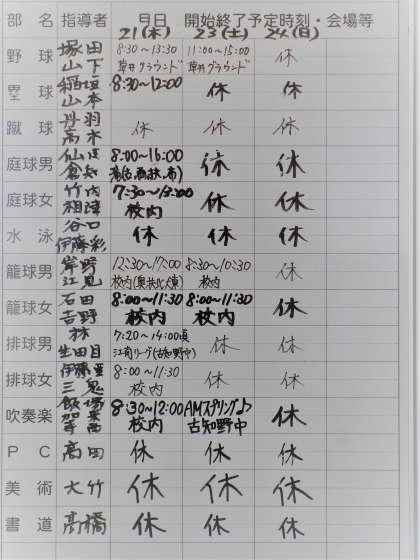 部 名 指導者 月日 開始終了予定時刻・会場等
21(木) 23(土) 24(日)
野 球 塚田 山下 8:30～13:30 草井グラウンド 11:00～15:00 草井グラウンド 休
塁 球 稲垣 山本 8:30～12:00 休 休
蹴 球 丹羽 高木 休 休 休
庭球男 倉知 8:00～16:00 休 休
庭球女 竹内 7:30～13:00 校内 休 休
水 泳 谷口 伊藤彩 休 休 休
籠球男 岸野 江見 12:30～17:00 校内 8:30～10:30 校内 休
籠球女 石田 吉野 8:00～11:30 校内 8:00～11:30 校内 休
排球男 林 生田目 7:20～14:00頃 (古知野中) 休 休
排球女 三鬼 8:00～11:30 校内 休 休
吹奏楽 飯塚 8:30～12:00 校内 AMスプリング♪ 古知野中 休
P C 高田 休 休 休
美 術 大竹 休 休 休
書 道 高橋 休 休 休